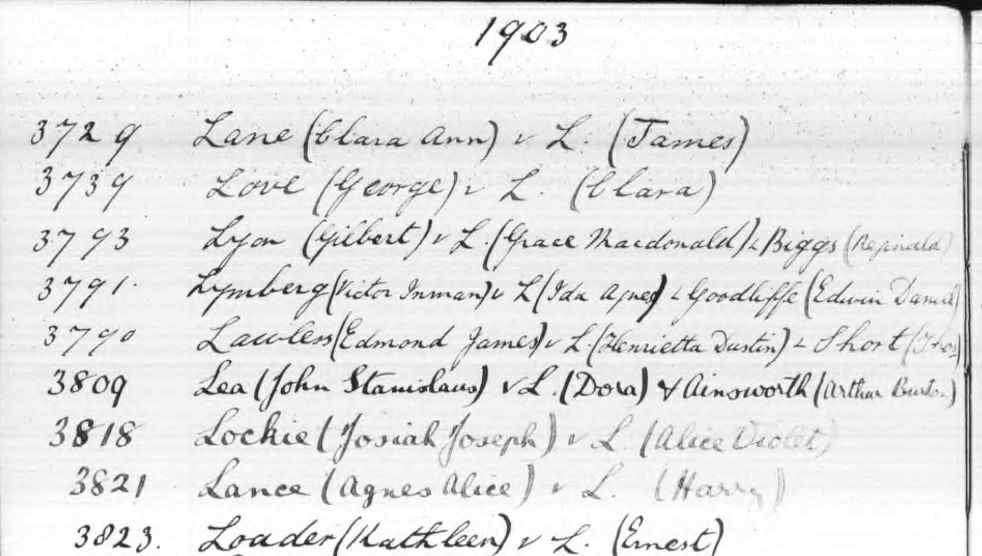 1903
3729 Lane (Clara Ann) v L. (James)
3739 Love (George) v L. (Clara)
3793 Lyon (Gilbert) v L. (Grace Macdonald) & Biggs (Reginald)
3791. Lymberg (Victor Inman) v L (Ida Agnes) & Goodliffe (Edwin Daniel)
3790 Lawless (Edmond James) v L. (Henrietta Dustin) & Short (Thos)
3809 Lea (John Stanislaus) v L. (Dora) & Ainsworth (Arthur Burton)
3818 Lockie (Josiah Joseph) v L. (Alice Violet)
3821 Lance (Agnes Alice) v L. (Harry)
3823. Loader (Kathleen) v L. (Ernest)